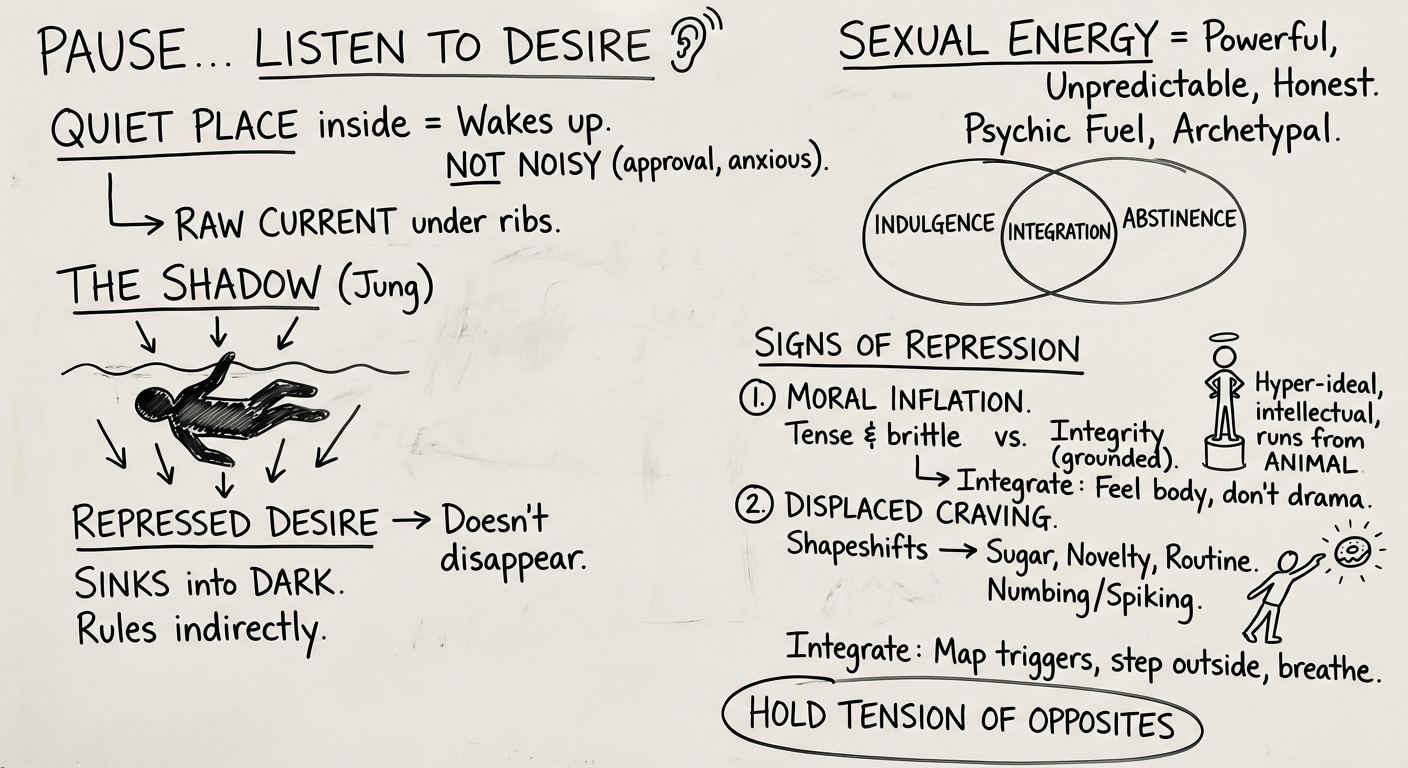 PAUSE... LISTEN TO DESIRE
QUIET PLACE inside = Wakes up.
NOT NOISY (approval, anxious).
RAW CURRENT under ribs.
THE SHADOW (Jung)
REPRESSED DESIRE → Doesn't
disappear.
SINKS into DARK.
Rules indirectly.
SEXUAL ENERGY = Powerful,
Unpredictable, Honest.
Psychic Fuel, Archetypal.
INDULGENCE INTEGRATION ABSTINENCE
SIGNS OF REPRESSION
1. MORAL INFLATION.
Tense & brittle vs. Integrity
(grounded).
→ Integrate: Feel body, don't drama.
Hyper-ideal,
intellectual,
runs from
ANIMAL
2. DISPLACED CRAVING.
Shapeshifts → Sugar, Novelty, Routine.
Numbing/Spiking.
Integrate: Map triggers, step outside, breathe.
HOLD TENSION OF OPPOSITES